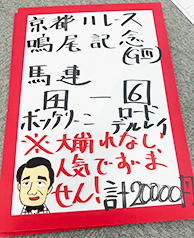 京都11レース
鳴尾記念
(GⅢ)
馬連
四一6
ボッケリーニ ロード
デルレイ
※大崩れなし、
人気ですが
ません!計20000円